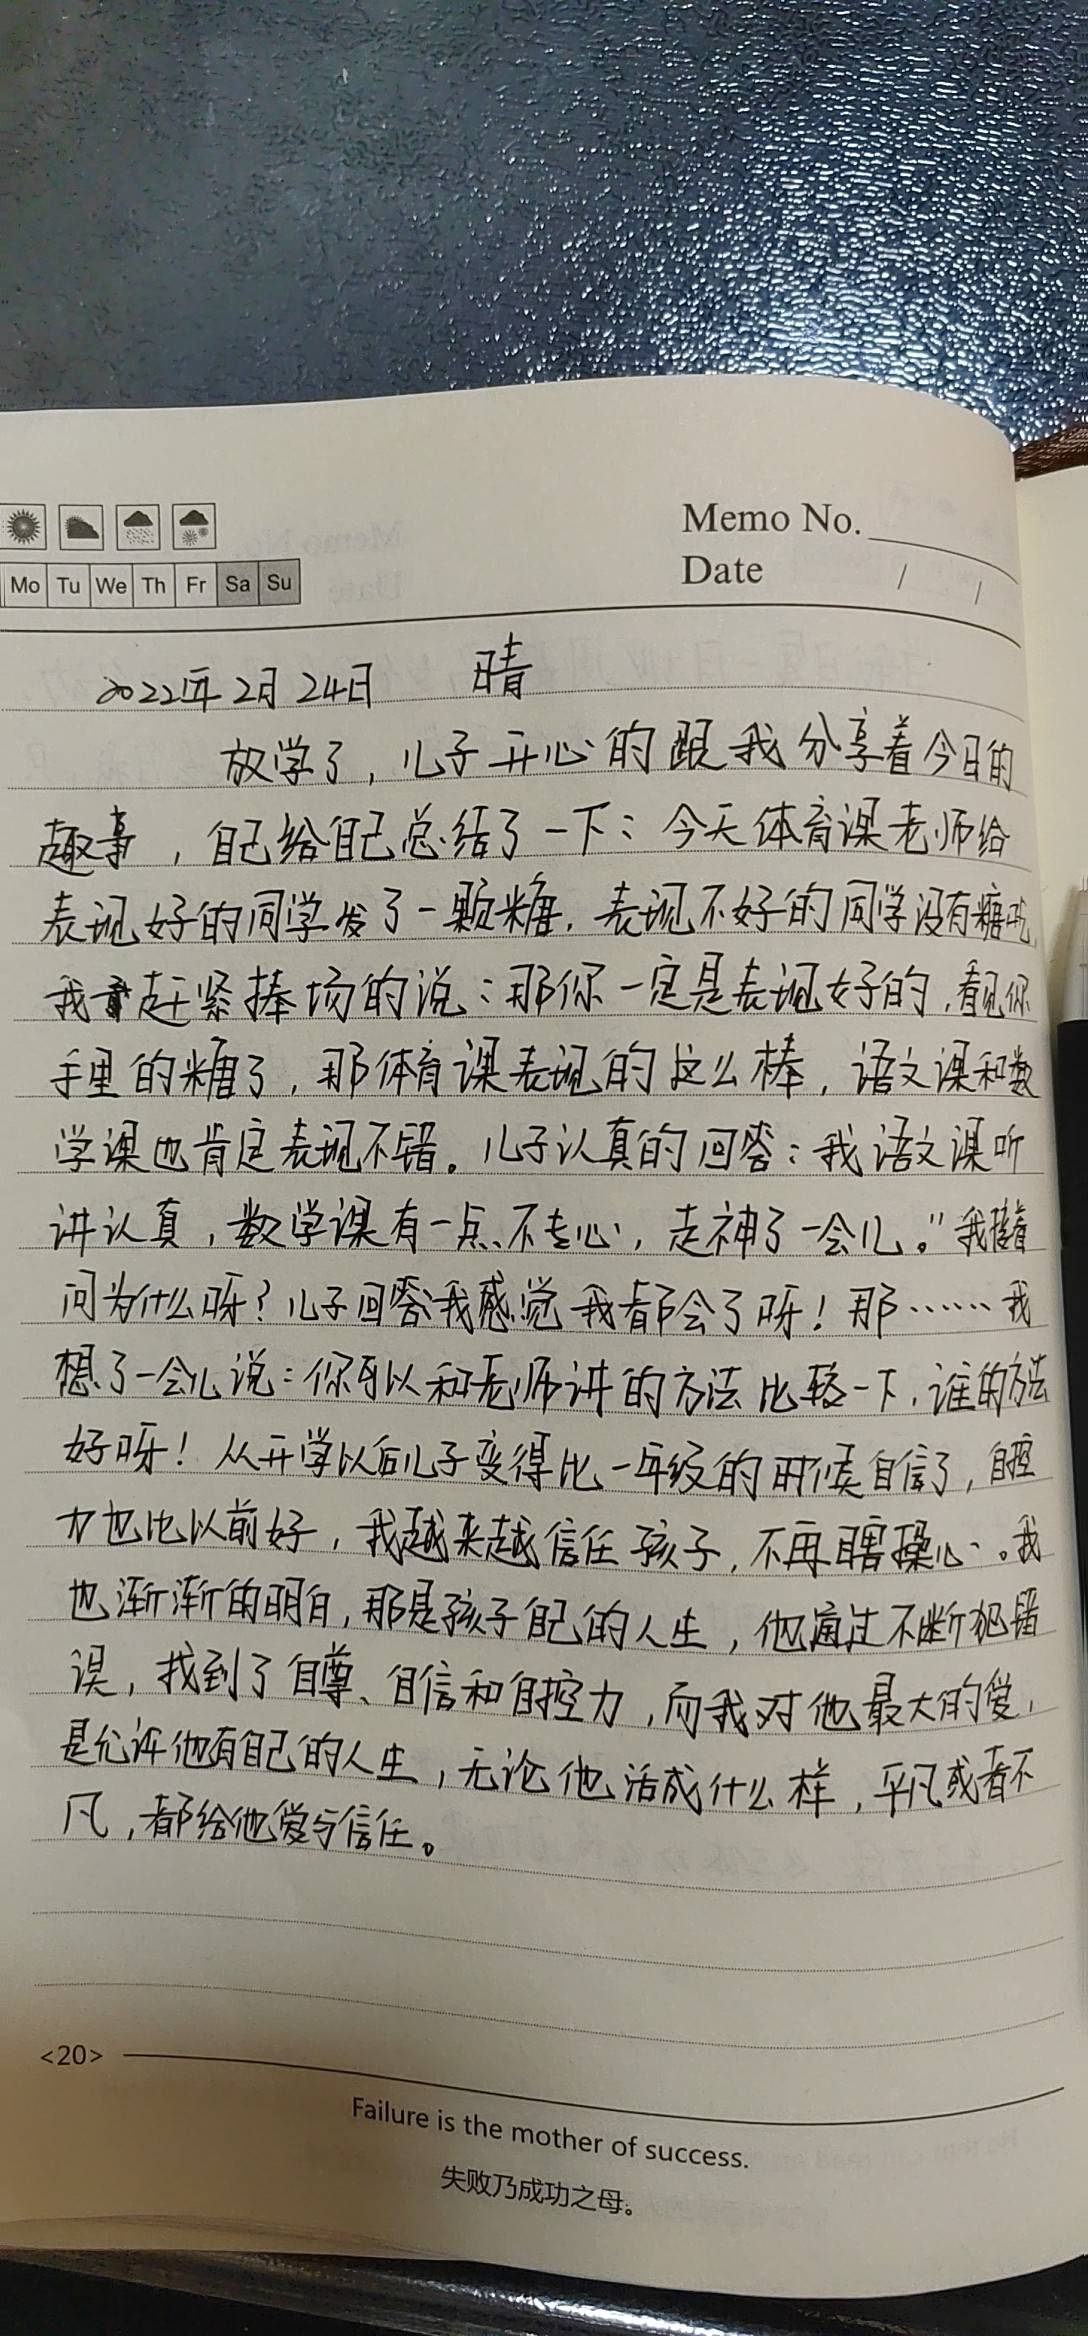 Memo No.
Date / /
Mo Tu We Th Fr Sa Su
2022年2月24日 晴
放学了，儿子开心的跟我分享着今日的
趣事，自己给自己总结了一下：今天体育课老师给
表现好的同学发了一颗糖，表现不好的同学没有糖吃，
我赶紧捧场的说：那你一定是表现好的，看见你
手里的糖了，那体育课表现的这么棒，语文课和数
学课也肯定表现不错。儿子认真的回答：我语文课听
讲认真，数学课有一点不专心，走神了一会儿。”我接着
问为什么呀？儿子回答：我感觉我都会了呀！那……我
想了一会儿说：你可以和老师讲的方法比较一下，谁的方法
好呀！从开学以后儿子变得比一年级的时候自信了，自控
力也比以前好，我越来越信任孩子，不再瞎操心。我
也渐渐的明白，那是孩子自己的人生，他通过不断犯错
误，找到了自尊、自信和自控力，而我对他最大的爱，
是允许他有自己的人生，无论他活成什么样，平凡或者不
凡，都给他爱与信任。
<20>
Failure is the mother of success.
失败乃成功之母。